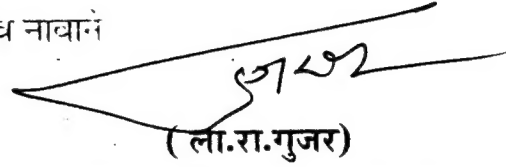 व नावाने
( ला.रा.गुजर)